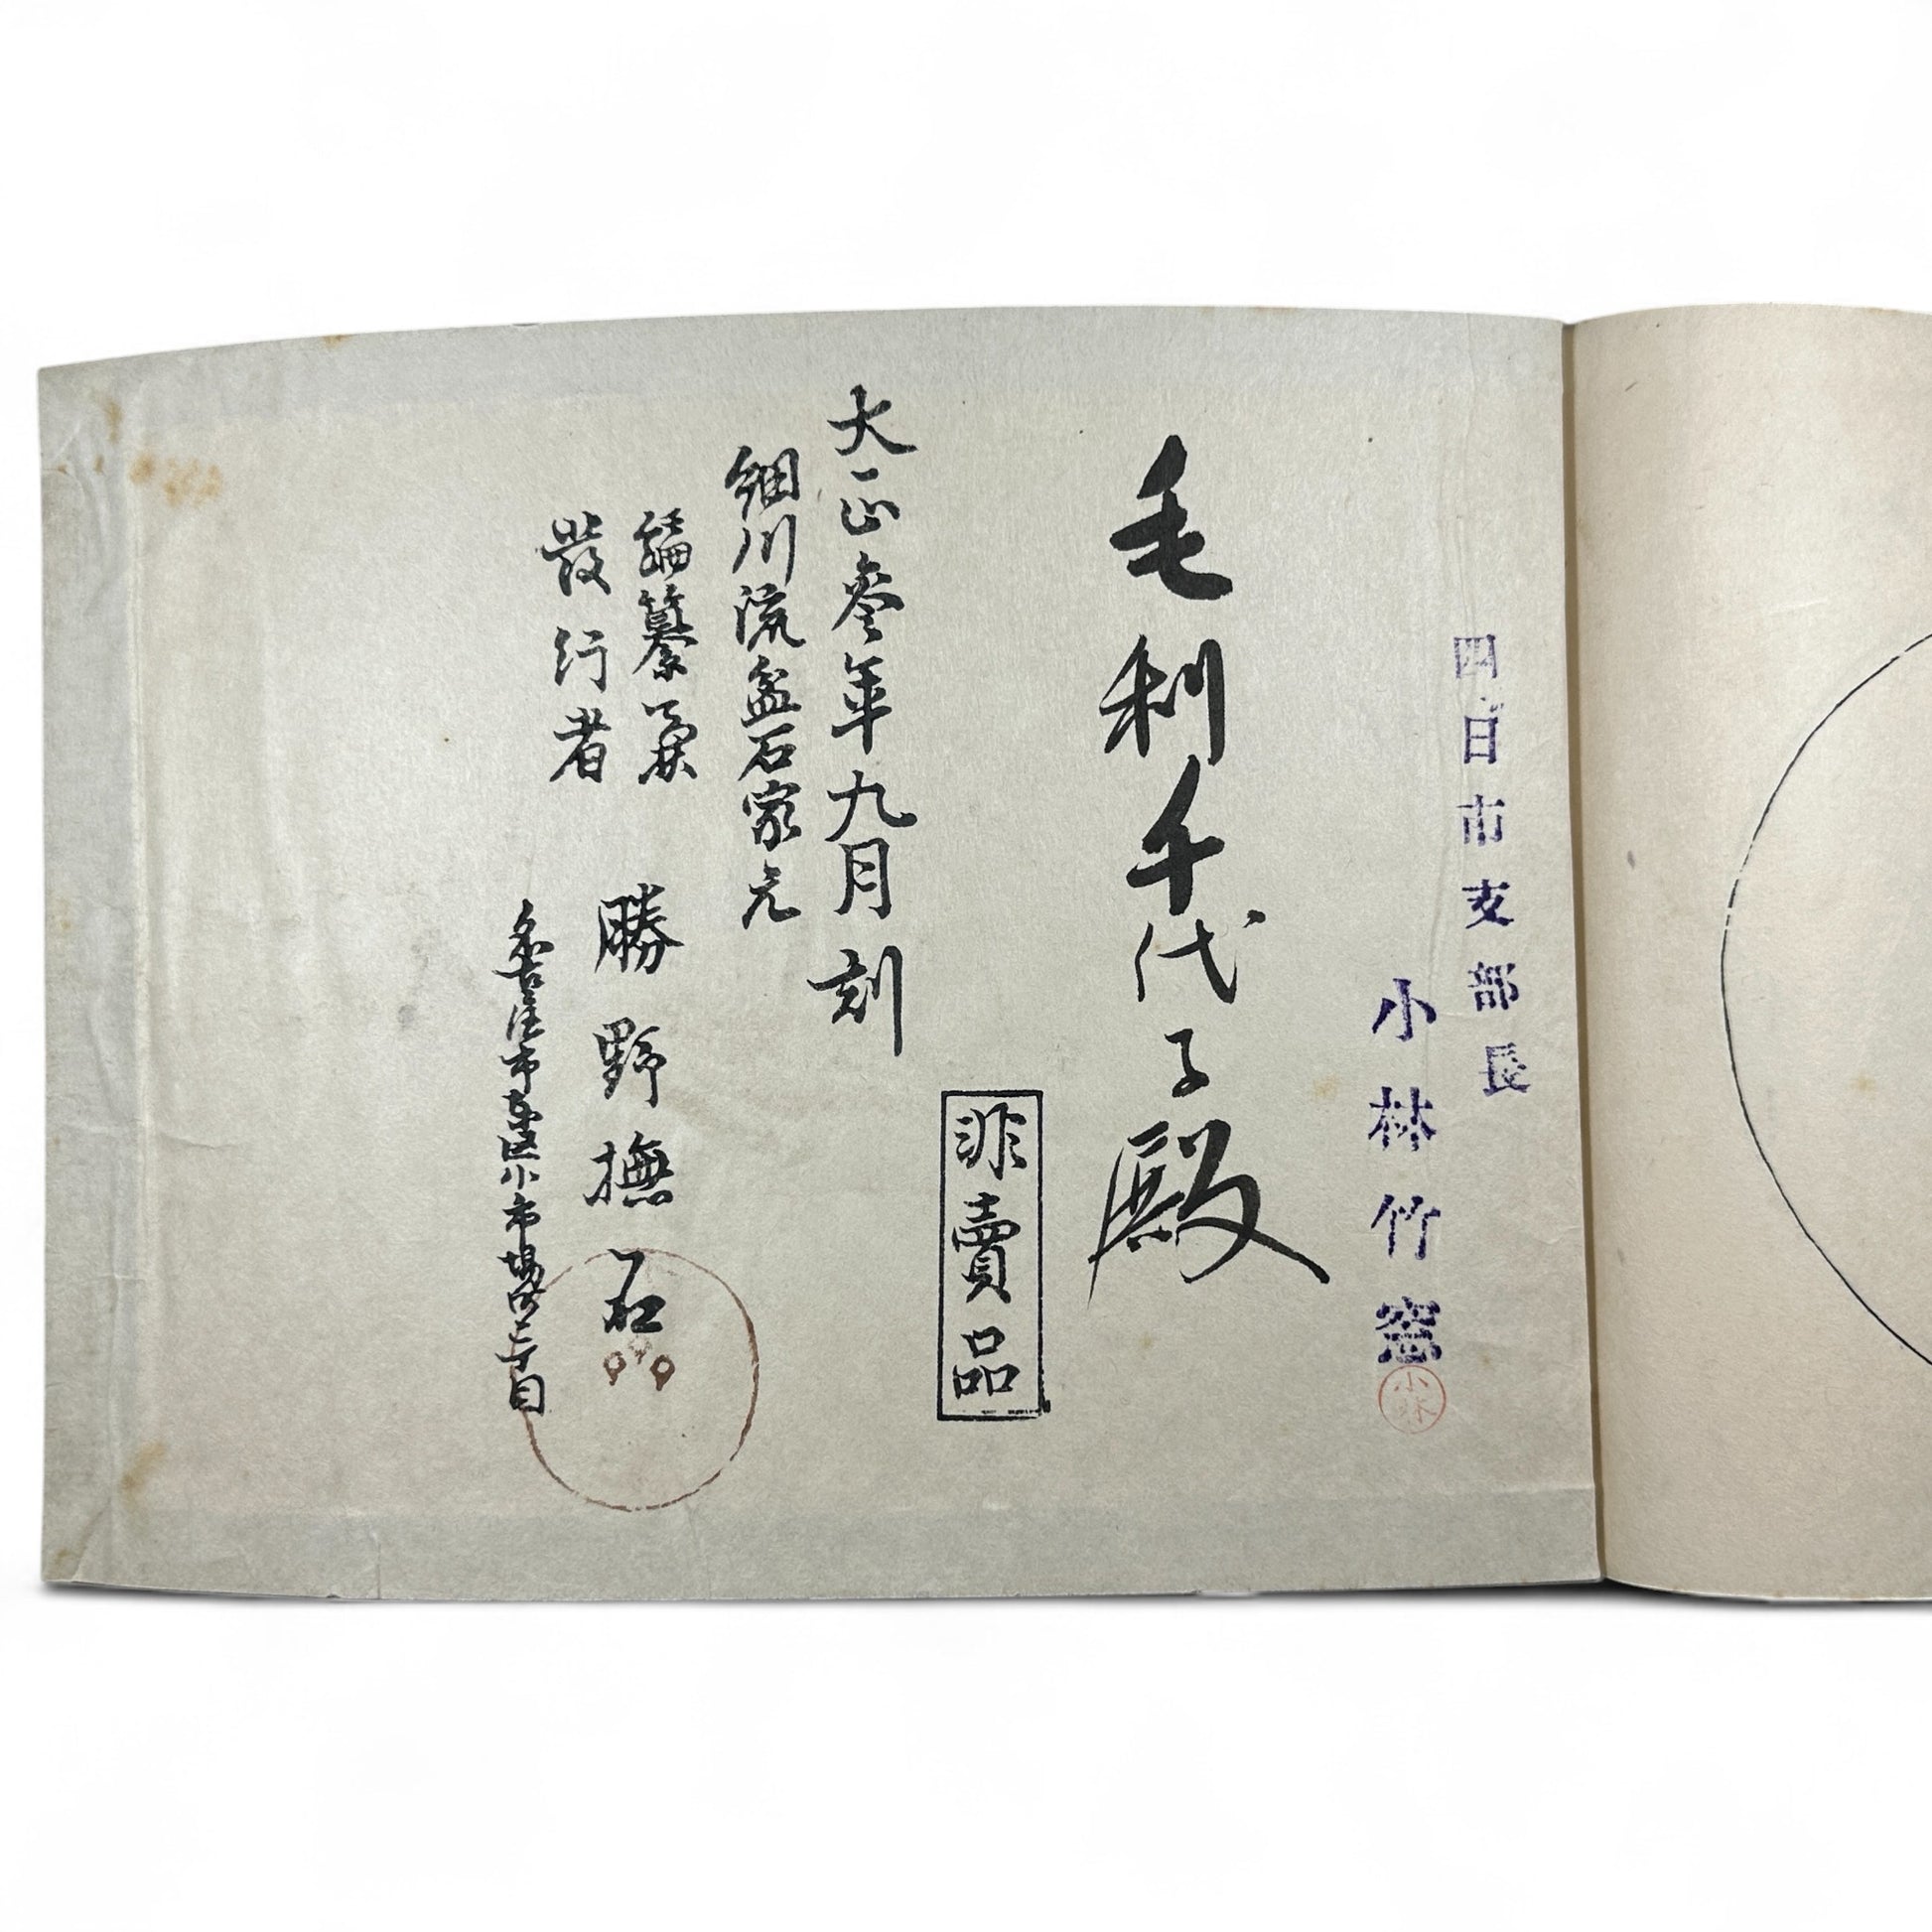 四日市支部長
小林竹窓
小林
毛利千代子殿
非賣品
大正參年九月刻
細川流盆石家元
編纂兼
發行者
勝野撫石
名古屋市東區小市場町二丁目